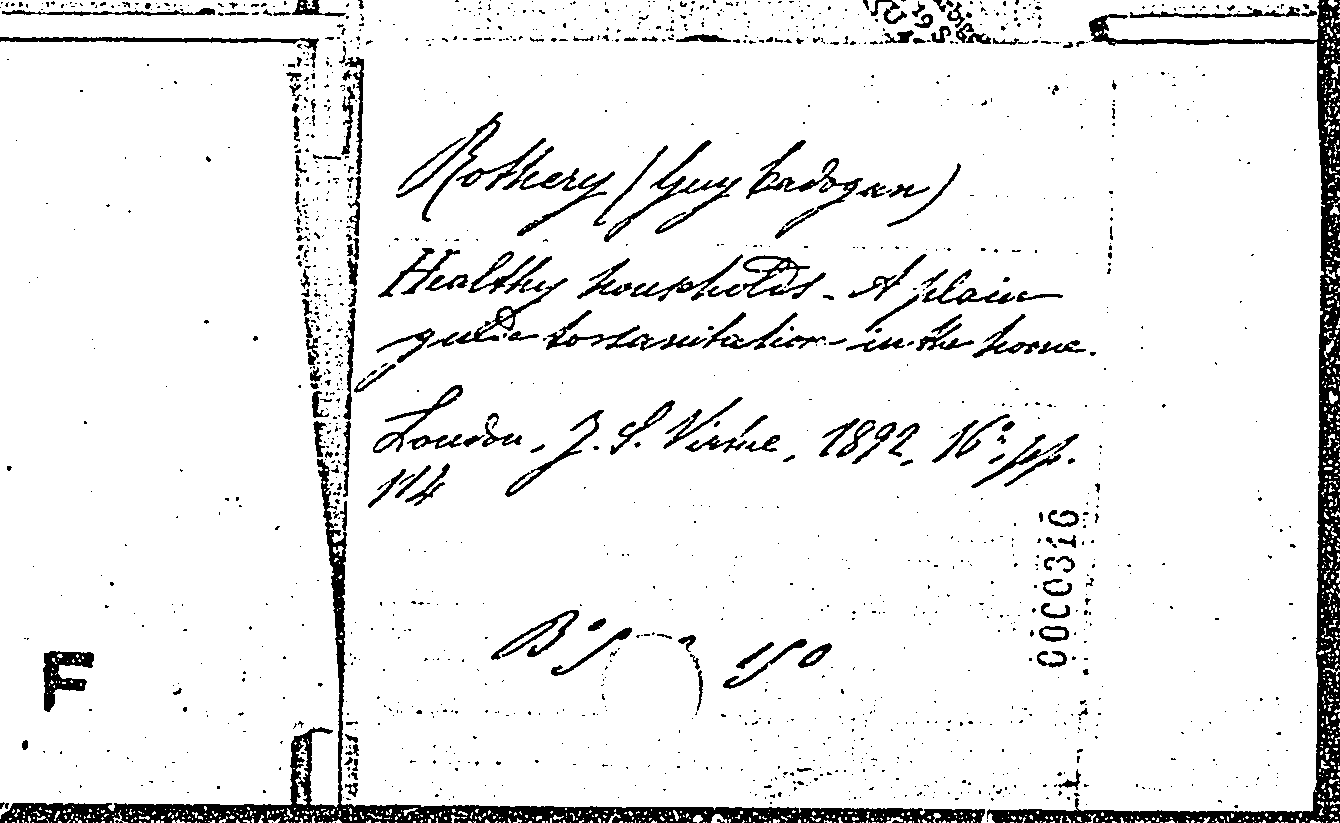 Rothery (Guy Cadogan)
Healthy households. A plain
guide to sanitation in the home.
London, J. S. Virtue, 1892, 16º, pp.
114
0000316
F